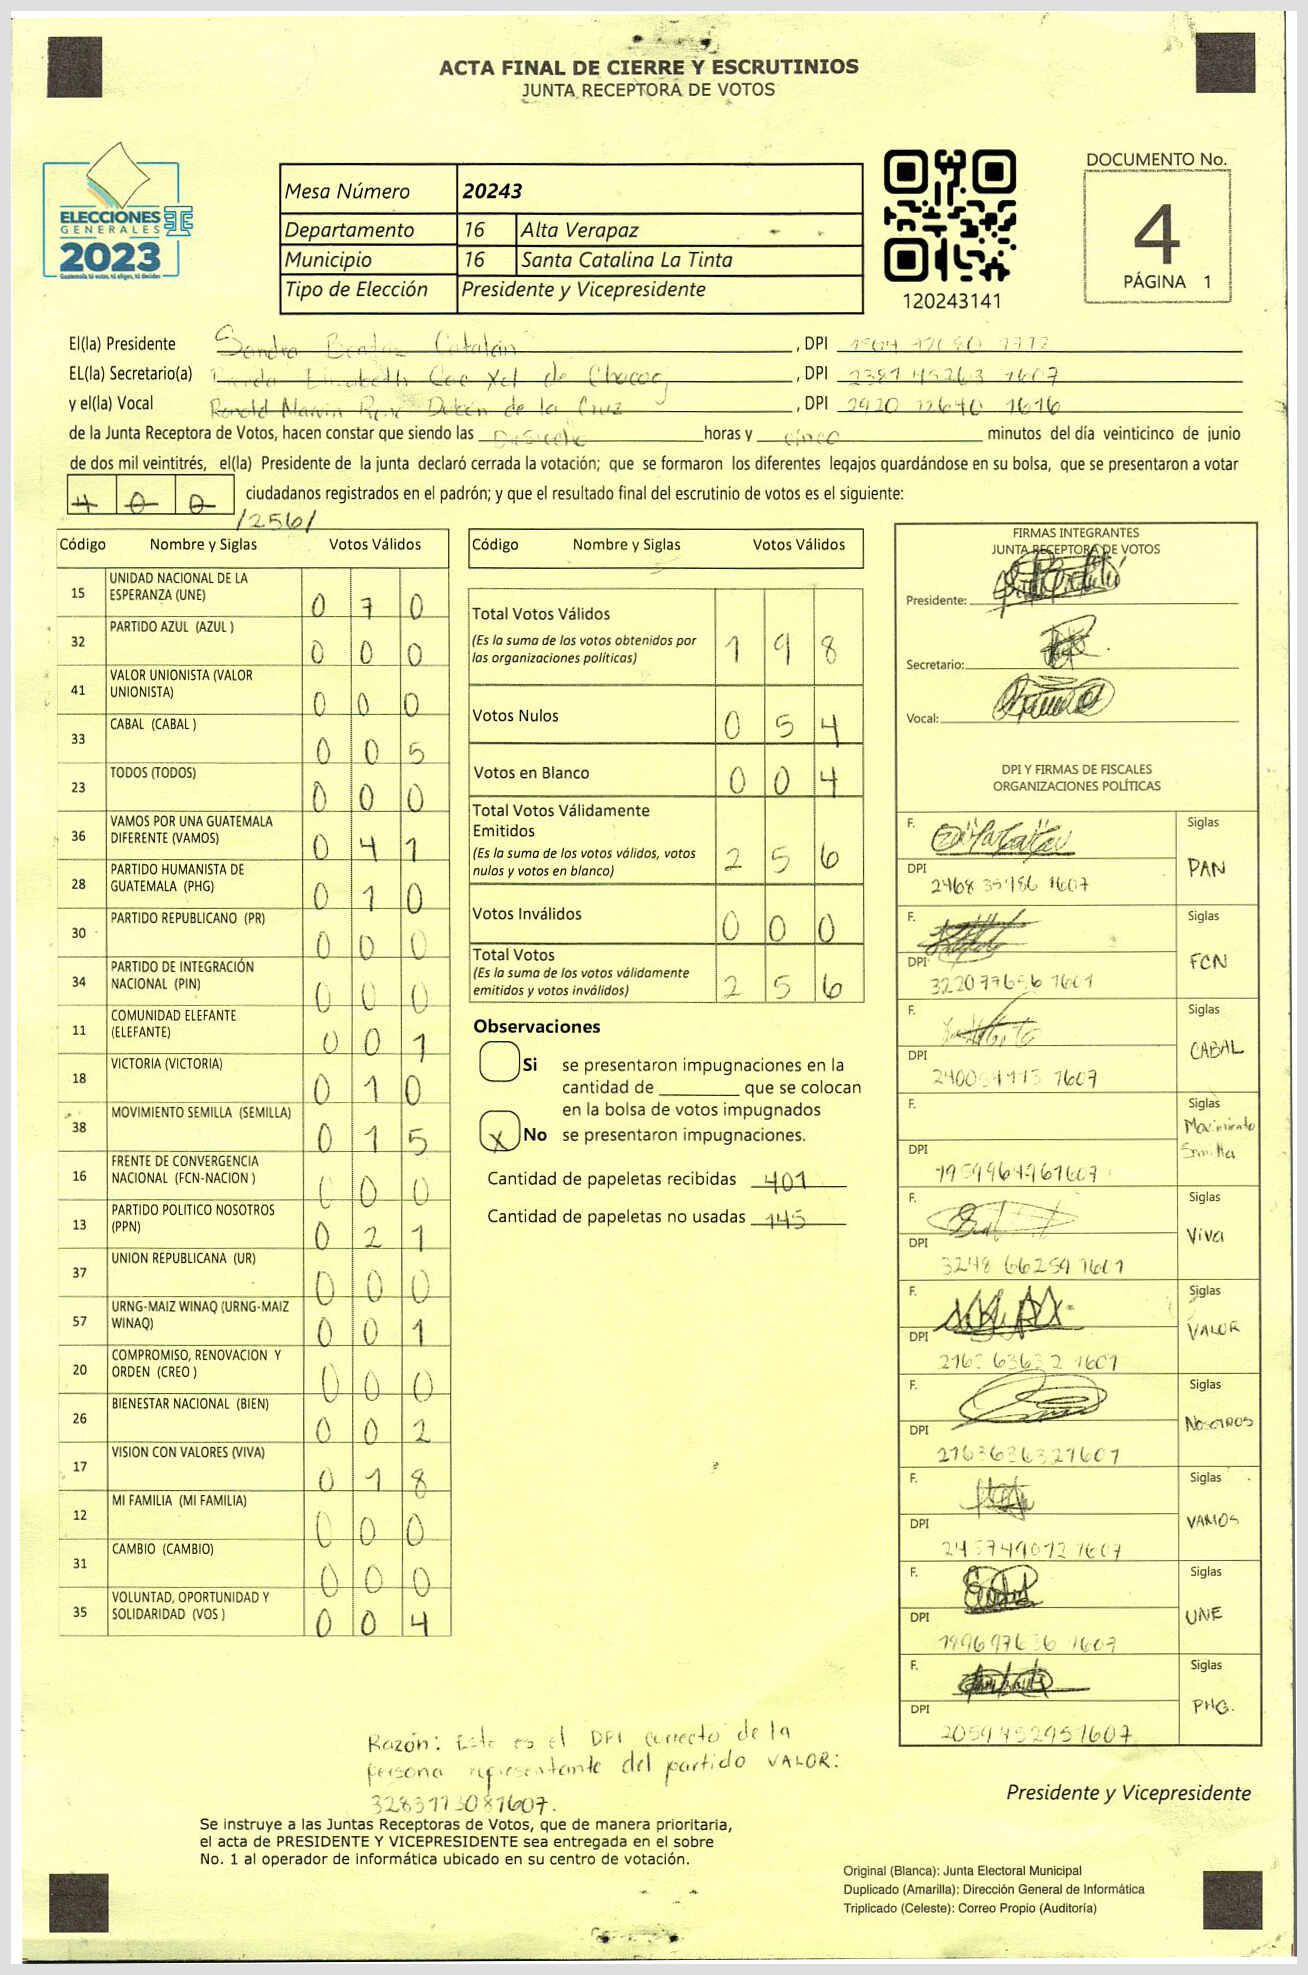 ACTA FINAL DE CIERRE Y ESCRUTINIOS
JUNTA RECEPTORA DE VOTOS
ELECCIONES
GENERALES
2023
Guatemala tú votas, tú eliges, tú decides
Mesa Número 20243
Departamento 16 Alta Verapaz
Municipio 16 Santa Catalina La Tinta
Tipo de Elección Presidente y Vicepresidente
120243141
DOCUMENTO No.
4
PÁGINA 1
El(la) Presidente Sandra Catalán , DPI
EL(la) Secretario(a) Elizabeth Coc Xol de Chocoj , DPI 2381 45263 1607
y el(la) Vocal Ronald Marvin René de la Cruz , DPI 2920 12640 1616
de la Junta Receptora de Votos, hacen constar que siendo las horas y cinco minutos del día veinticinco de junio
de dos mil veintitrés, el(la) Presidente de la junta declaró cerrada la votación; que se formaron los diferentes legajos guardándose en su bolsa, que se presentaron a votar
4 0 0 ciudadanos registrados en el padrón; y que el resultado final del escrutinio de votos es el siguiente:
/256/
Código Nombre y Siglas Votos Válidos
15 UNIDAD NACIONAL DE LA ESPERANZA (UNE) 0 7 0
32 PARTIDO AZUL (AZUL ) 0 0 0
41 VALOR UNIONISTA (VALOR UNIONISTA) 0 0 0
33 CABAL (CABAL ) 0 0 5
23 TODOS (TODOS) 0 0 0
36 VAMOS POR UNA GUATEMALA DIFERENTE (VAMOS) 0 4 1
28 PARTIDO HUMANISTA DE GUATEMALA (PHG) 0 1 0
30 PARTIDO REPUBLICANO (PR) 0 0 0
34 PARTIDO DE INTEGRACIÓN NACIONAL (PIN) 0 0 0
11 COMUNIDAD ELEFANTE (ELEFANTE) 0 0 1
18 VICTORIA (VICTORIA) 0 1 0
38 MOVIMIENTO SEMILLA (SEMILLA) 0 1 5
16 FRENTE DE CONVERGENCIA NACIONAL (FCN-NACION ) 0 0 0
13 PARTIDO POLITICO NOSOTROS (PPN) 0 2 1
37 UNION REPUBLICANA (UR) 0 0 0
57 URNG-MAIZ WINAQ (URNG-MAIZ WINAQ) 0 0 1
20 COMPROMISO, RENOVACION Y ORDEN (CREO ) 0 0 0
26 BIENESTAR NACIONAL (BIEN) 0 0 2
17 VISION CON VALORES (VIVA) 0 1 8
12 MI FAMILIA (MI FAMILIA) 0 0 0
31 CAMBIO (CAMBIO) 0 0 0
35 VOLUNTAD, OPORTUNIDAD Y SOLIDARIDAD (VOS ) 0 0 4
Código Nombre y Siglas Votos Válidos
Total Votos Válidos 1 9 8
(Es la suma de los votos obtenidos por
las organizaciones políticas)
Votos Nulos 0 5 4
Votos en Blanco 0 0 4
Total Votos Válidamente
Emitidos
(Es la suma de los votos válidos, votos
nulos y votos en blanco) 2 5 6
Votos Inválidos 0 0 0
Total Votos
(Es la suma de los votos válidamente
emitidos y votos inválidos) 2 5 6
Observaciones
Si se presentaron impugnaciones en la
cantidad de ________ que se colocan
en la bolsa de votos impugnados
X No se presentaron impugnaciones.
Cantidad de papeletas recibidas 401
Cantidad de papeletas no usadas 145
FIRMAS INTEGRANTES
JUNTA RECEPTORA DE VOTOS
Presidente:
Secretario:
Vocal:
DPI Y FIRMAS DE FISCALES
ORGANIZACIONES POLÍTICAS
F. Siglas
DPI 2468 35986 1607 PAN
F. Siglas
DPI 322077656 1601 FCN
F. Siglas
DPI 1607 CABAL
F. Siglas
DPI 1959964961607 Movimiento Semilla
F. Siglas
DPI 3248 66259 1601 Viva
F. Siglas
DPI 2163 63632 1601 VALOR
F. Siglas
DPI 2163636321607 NOSOTROS
F. Siglas
DPI 245749072 1607 VAMOS
F. Siglas
DPI 199697636 1607 UNE
F. Siglas
DPI 2059452951607 PHG.
Razón: Este es el DPI correcto de la
persona representante del partido VALOR:
3283113081607.
Presidente y Vicepresidente
Se instruye a las Juntas Receptoras de Votos, que de manera prioritaria,
el acta de PRESIDENTE Y VICEPRESIDENTE sea entregada en el sobre
No. 1 al operador de informática ubicado en su centro de votación.
Original (Blanca): Junta Electoral Municipal
Duplicado (Amarilla): Dirección General de Informática
Triplicado (Celeste): Correo Propio (Auditoría)